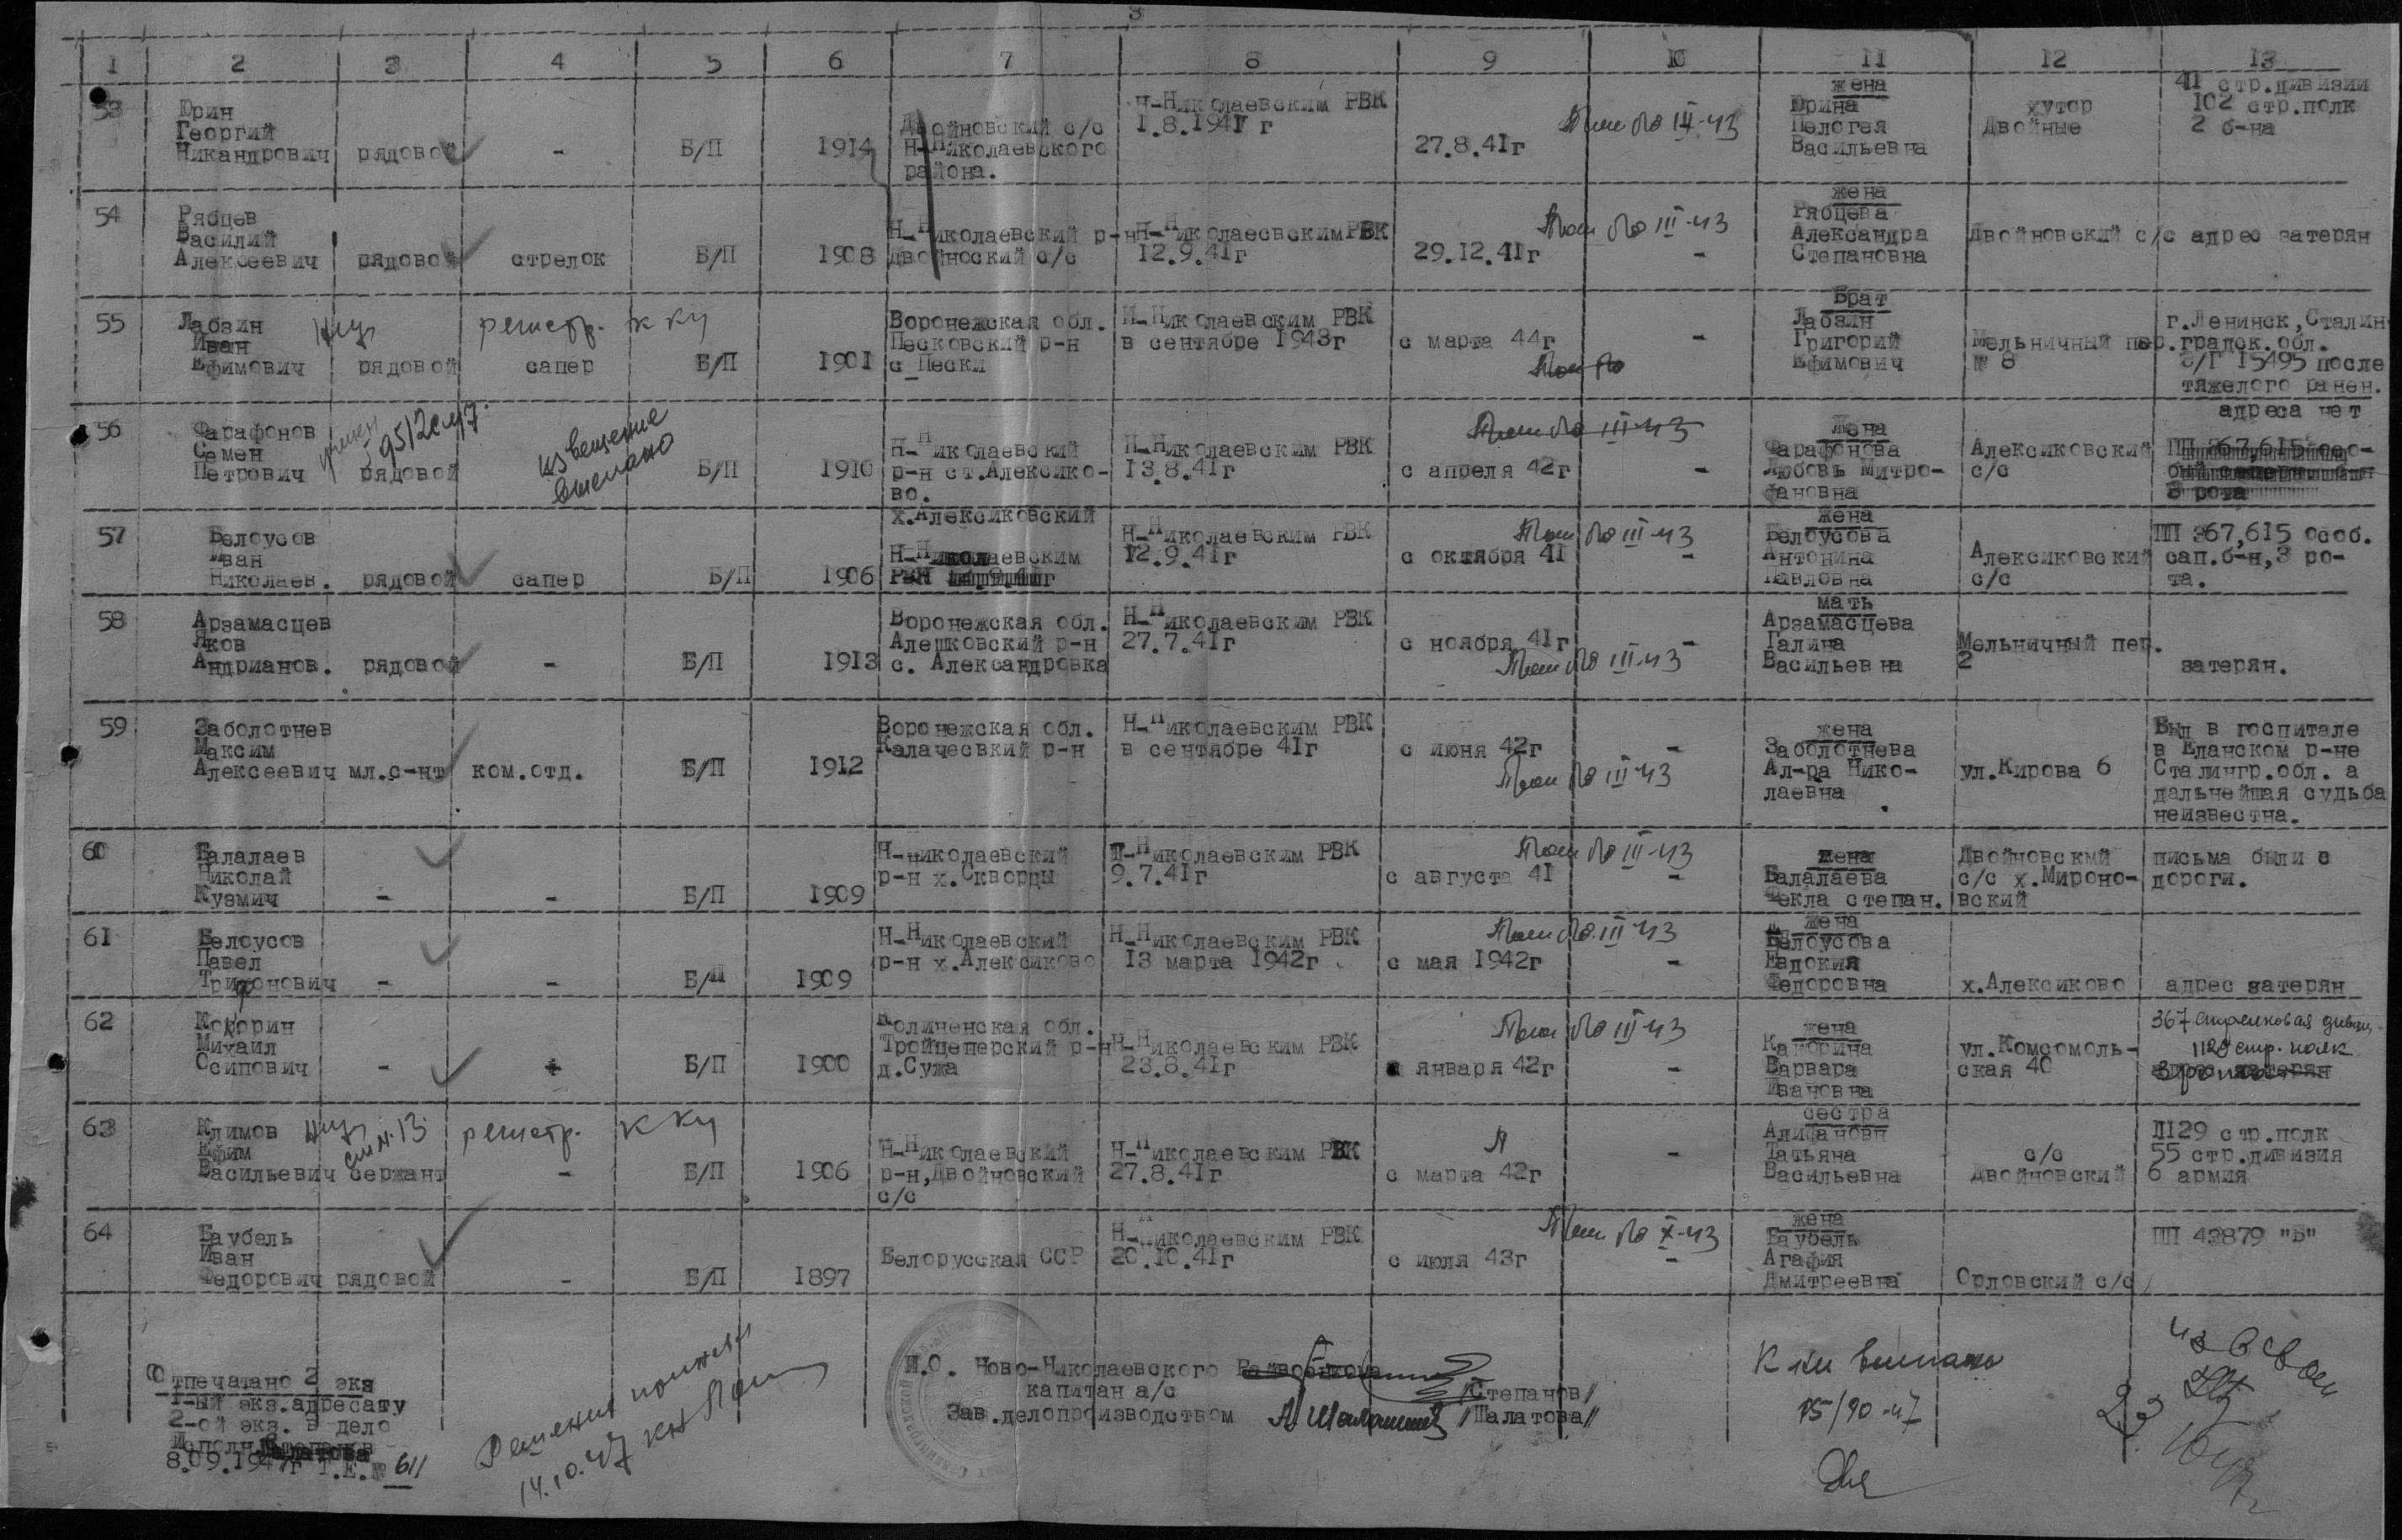 3
1 2 3 4 5 6 7 8 9 10 11 12 13
53
Юрин
Георгий
Никандрович
рядовой
-
Б/П
1914
Двойновский с/с
Н-Николаевского
района.
Н-Николаевским РВК
1.8.1941 г
27.8.41г
III-43
жена
Юрина
Пелогея
Васильевна
хутор
Двойные
41 стр.дивизии
102 стр.полк
2 б-на
54
Рябцев
Василий
Алексеевич
рядовой
стрелок
Б/П
1908
Н-Николаевский р-н
Двойноский с/с
Н-Николаесвским РВК
12.9.41г
29.12.41г
III-43
-
жена
Рябцева
Александра
Степановна
Двойновский с/с
адрес затерян
55
Лабзин
Иван
Ефимович
рядовой
регистр. к ку
сапер
Б/П
1901
Воронежская обл.
Песковский р-н
с Пески
Н-Николаевским РВК
в сентябре 1943г
с марта 44г
-
Брат
Лабзин
Григорий
Ефимович
Мельничный пер.
№ 8
г.Ленинск,Сталин
градск.обл.
Э/Г 15495 после
тяжелого ранен.
адреса нет
56
Фарафонов
Семен
Петрович
рядовой
извещение
выслано
Б/П
1910
Н-Николаевский
р-н ст.Алексико-
во.
Н-Николаевским РВК
13.8.41г
III-43
с апреля 42г
-
Жена
Фарафонова
Любовь Митро-
фановна
Алексиковский
с/с
ПП 367,615 осо-
3 рота
57
Белоусов
Иван
Николаев.
рядовой
сапер
Б/П
1906
х.Алексиковский
Н-Николаевским
РВК
Н-Николаевским РВК
12.9.41г
III-43
с октября 41
-
жена
Белоусова
Антонина
Павловна
Алексиковский
с/с
ПП 367,615 особ.
сап.б-н,3 ро-
та.
58
Арзамасцев
Яков
Андрианов.
рядовой
-
Б/П
1913
Воронежская обл.
Алешковский р-н
с. Александровка
Н-Николаевским РВК
27.7.41г
с ноября 41г
-
III-43
мать
Арзамасцева
Галина
Васильевна
Мельничный пер.
2
затерян.
59
Заболотнев
Максим
Алексеевич
мл.с-нт
ком.отд.
Б/П
1912
Воронежская обл.
Калачесвкий р-н
Н-Николаевским РВК
в сентябре 41г
с июня 42г
-
III-43
жена
Заболотнева
Ал-ра Нико-
лаевна
ул.Кирова 6
Был в госпитале
в Еланском р-не
Сталингр.обл. а
дальнейшая судьба
неизвестна.
60
Балалаев
Николай
Кузмич
-
-
Б/П
1909
Н-николаевский
р-н х.Скворцы
Н-Николаевским РВК
9.7.41г
III-43
с августа 41
-
жена
Балалаева
Фекла степан.
Двойновский
с/с х.Мироно-
вский
письма были с
дороги.
61
Белоусов
Павел
Трифонович
-
-
Б/П
1909
Н-Николаевский
р-н х.Алексиково
Н-Николаевским РВК
13 марта 1942г
III-43
с мая 1942г
-
жена
Белоусова
Евдокия
Федоровна
х.Алексиково
адрес затерян
62
Михаил
Осипович
-
Б/П
1900
Тройцеперский р-н
д.Сужа
Н-Николаевским РВК
23.8.41г
III-43
января 42г
-
жена
Варвара
Ивановна
ул.Комсомоль-
ская 40
367 стрелковая дивиз
стр. полк
63
Климов
Ефим
Васильевич
сержант
регистр. к ку
-
Б/П
1906
Н-Николаевский
р-н,Двойновский
с/с
Н-Николаевским РВК
27.8.41г
с марта 42г
-
сестра
Татьяна
Васильевна
с/с
Двойновский
1129 стр.полк
55 стр.дивизия
6 армия
64
Баубель
Иван
Федорович
рядовой
-
Б/П
1897
Белорусская ССР
Н-Николаевским РВК
20.10.41г
X-43
с июля 43г
-
жена
Баубель
Агафия
Дмитреевна
Орловский с/с
ПП 43879 "Б"
Отпечатано 2 экз
1-ый экз.адресату
2-ой экз. в дело
8.09.1947г Т.Е.№ 611
14.10.47
И.О. Ново-Николаевского Райвоенкома
капитан а/с /Степанов/
Зав.делопроизводством /Шалатова/